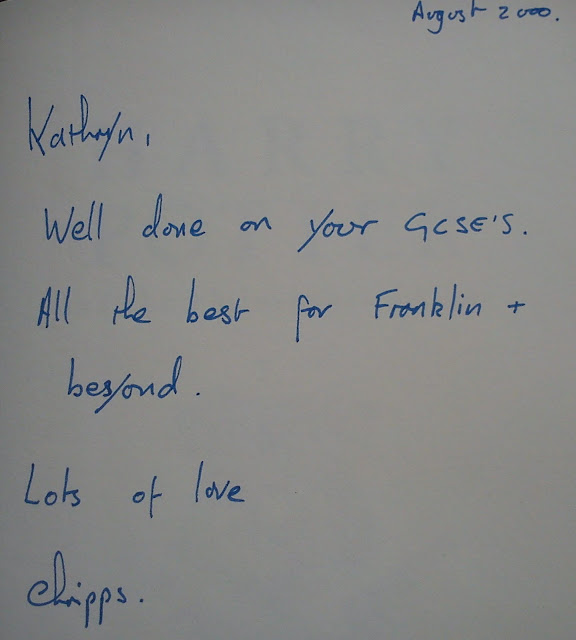 August 2000.
Kathryn,
Well done on your GCSE'S.
All the best for Franklin +
beyond.
Lots of love
Chripps.